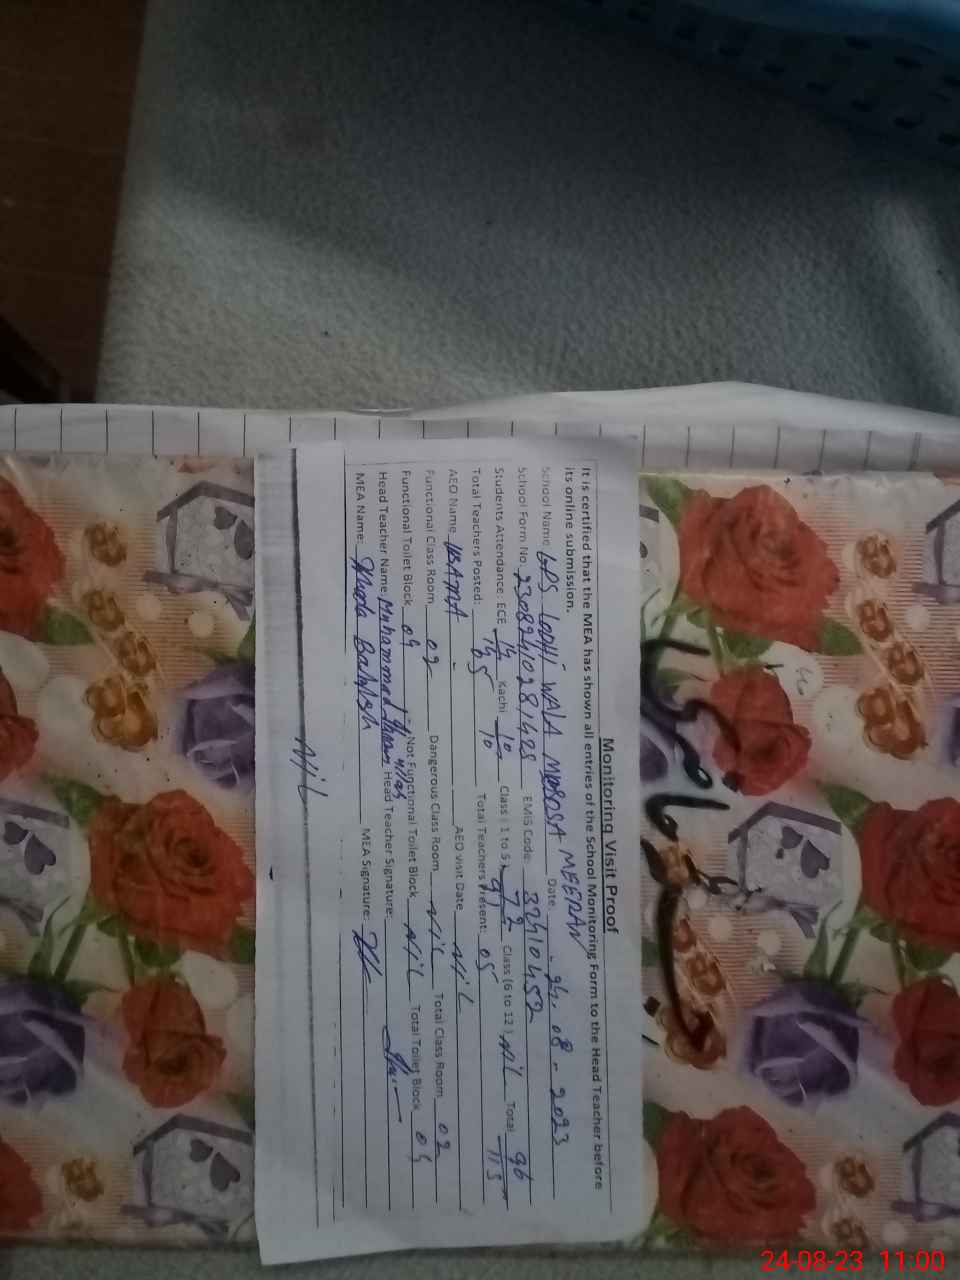 Monitoring Visit Proof
It is certified that the MEA has shown all entries of the School Monitoring Form to the Head Teacher before
its online submission.
School Name GPS LODHI WALA MOSOSA MEERAN Date 24.08.2023
School Form No. EMIS Code: 32410452
Students Attendance: ECE 14 Kachi 10 Class (1 to 5) 72 Class (6 to 12) NIL Total 96
14 10 91 115
Total Teachers Posted: 05 Total Teachers Present: 05
AEO Name AEO Visit Date NIL
Functional Class Room 02 Dangerous Class Room NIL Total Class Room 02
Functional Toilet Block 04 Not Functional Toilet Block NIL Total Toilet Block 04
Head Teacher Name: Muhammad Head Teacher Signature:
MEA Name: Bakhsh MEA Signature:
Nil
24-08-23 11:00